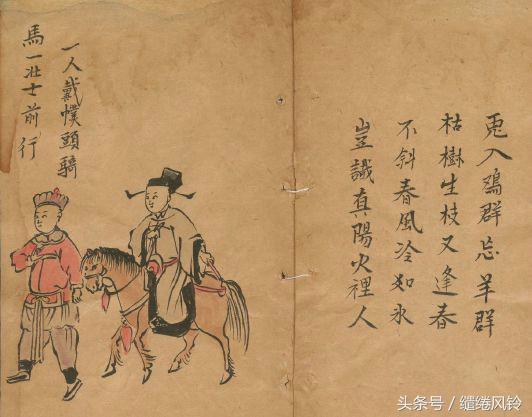 兎入鴉群忘羊群
枯樹生枝又逢春
不斜春風冷如氷
豈識真陽火裡人
一人戴幞頭騎
馬一壯士前行
头条号 / 缱绻风铃